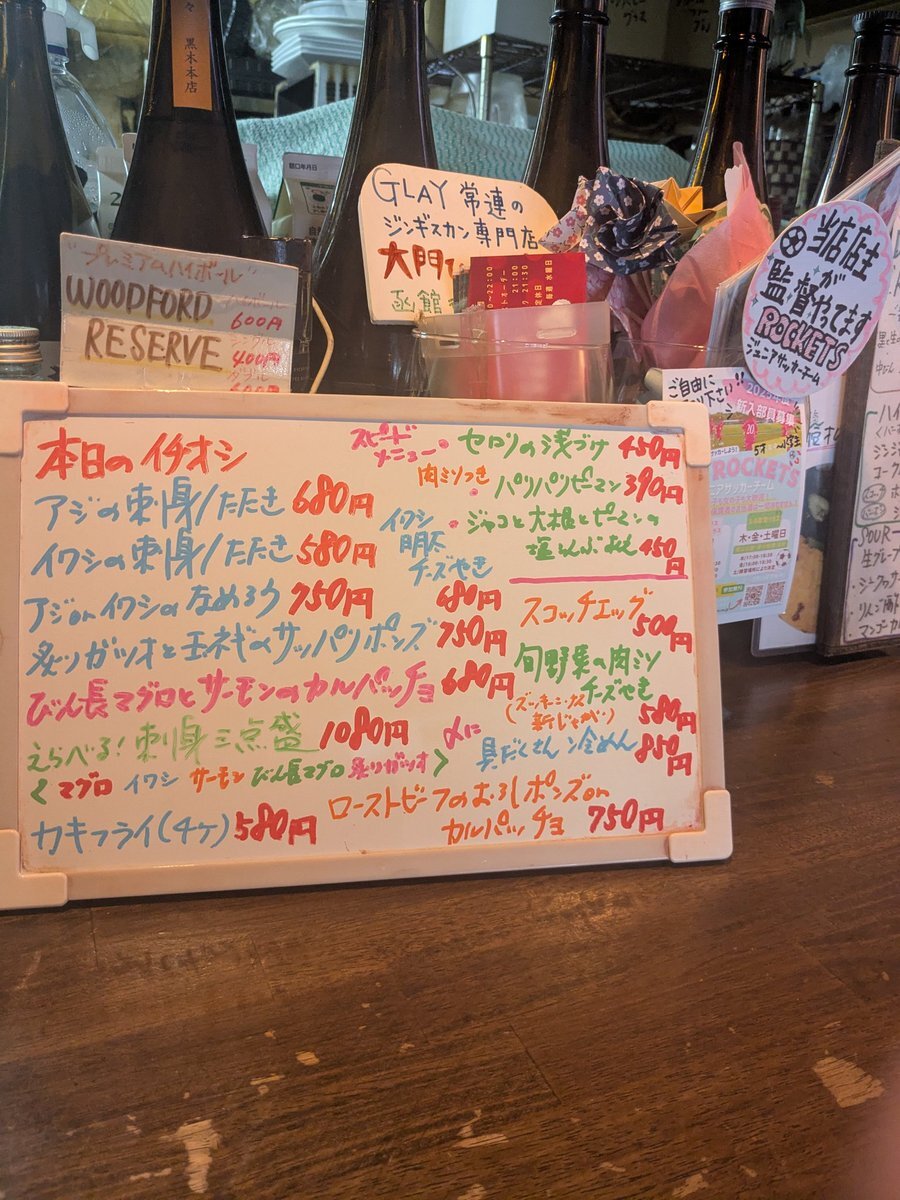 黒木本店
GLAY 常連の
ジンギスカン専門店
大門
函館
定休日 毎週 水曜日
"プレミアムハイボール"
WOODFORD
RESERVE
600円
400円
当店店主
が
監督やってます
ROCKETS
ジュニアサッカーチーム
ご自由に
新入部員募集
ROCKETS
木・金・土曜日
本日のイチオシ
アジの刺身/たたき 680円
イワシの刺身/たたき 580円
アジorイワシのなめろう 750円
炙りガツオと玉ネギのサッパリポンズ 750円
びん長マグロとサーモンのカルパッチョ 680円
えらべる!刺身三点盛 1080円
<マグロ イワシ サーモン びん長マグロ 炙りガツオ>
カキフライ(4ケ) 580円
スピード
メニュー
・セロリの浅づけ 450円
肉ミソつき
・パリパリピーマン 390円
・ジャコと大根とピーマンの
塩こんぶあえ 450円
イワシ
明太
チーズやき
680円
スコッチエッグ
500円
旬野菜の肉ミソ
チーズやき
(ズッキーニ、ナス
新じゃが) 580円
〆に
具だくさん冷めん 850円
ローストビーフのおろしポンズor
カルパッチョ 750円